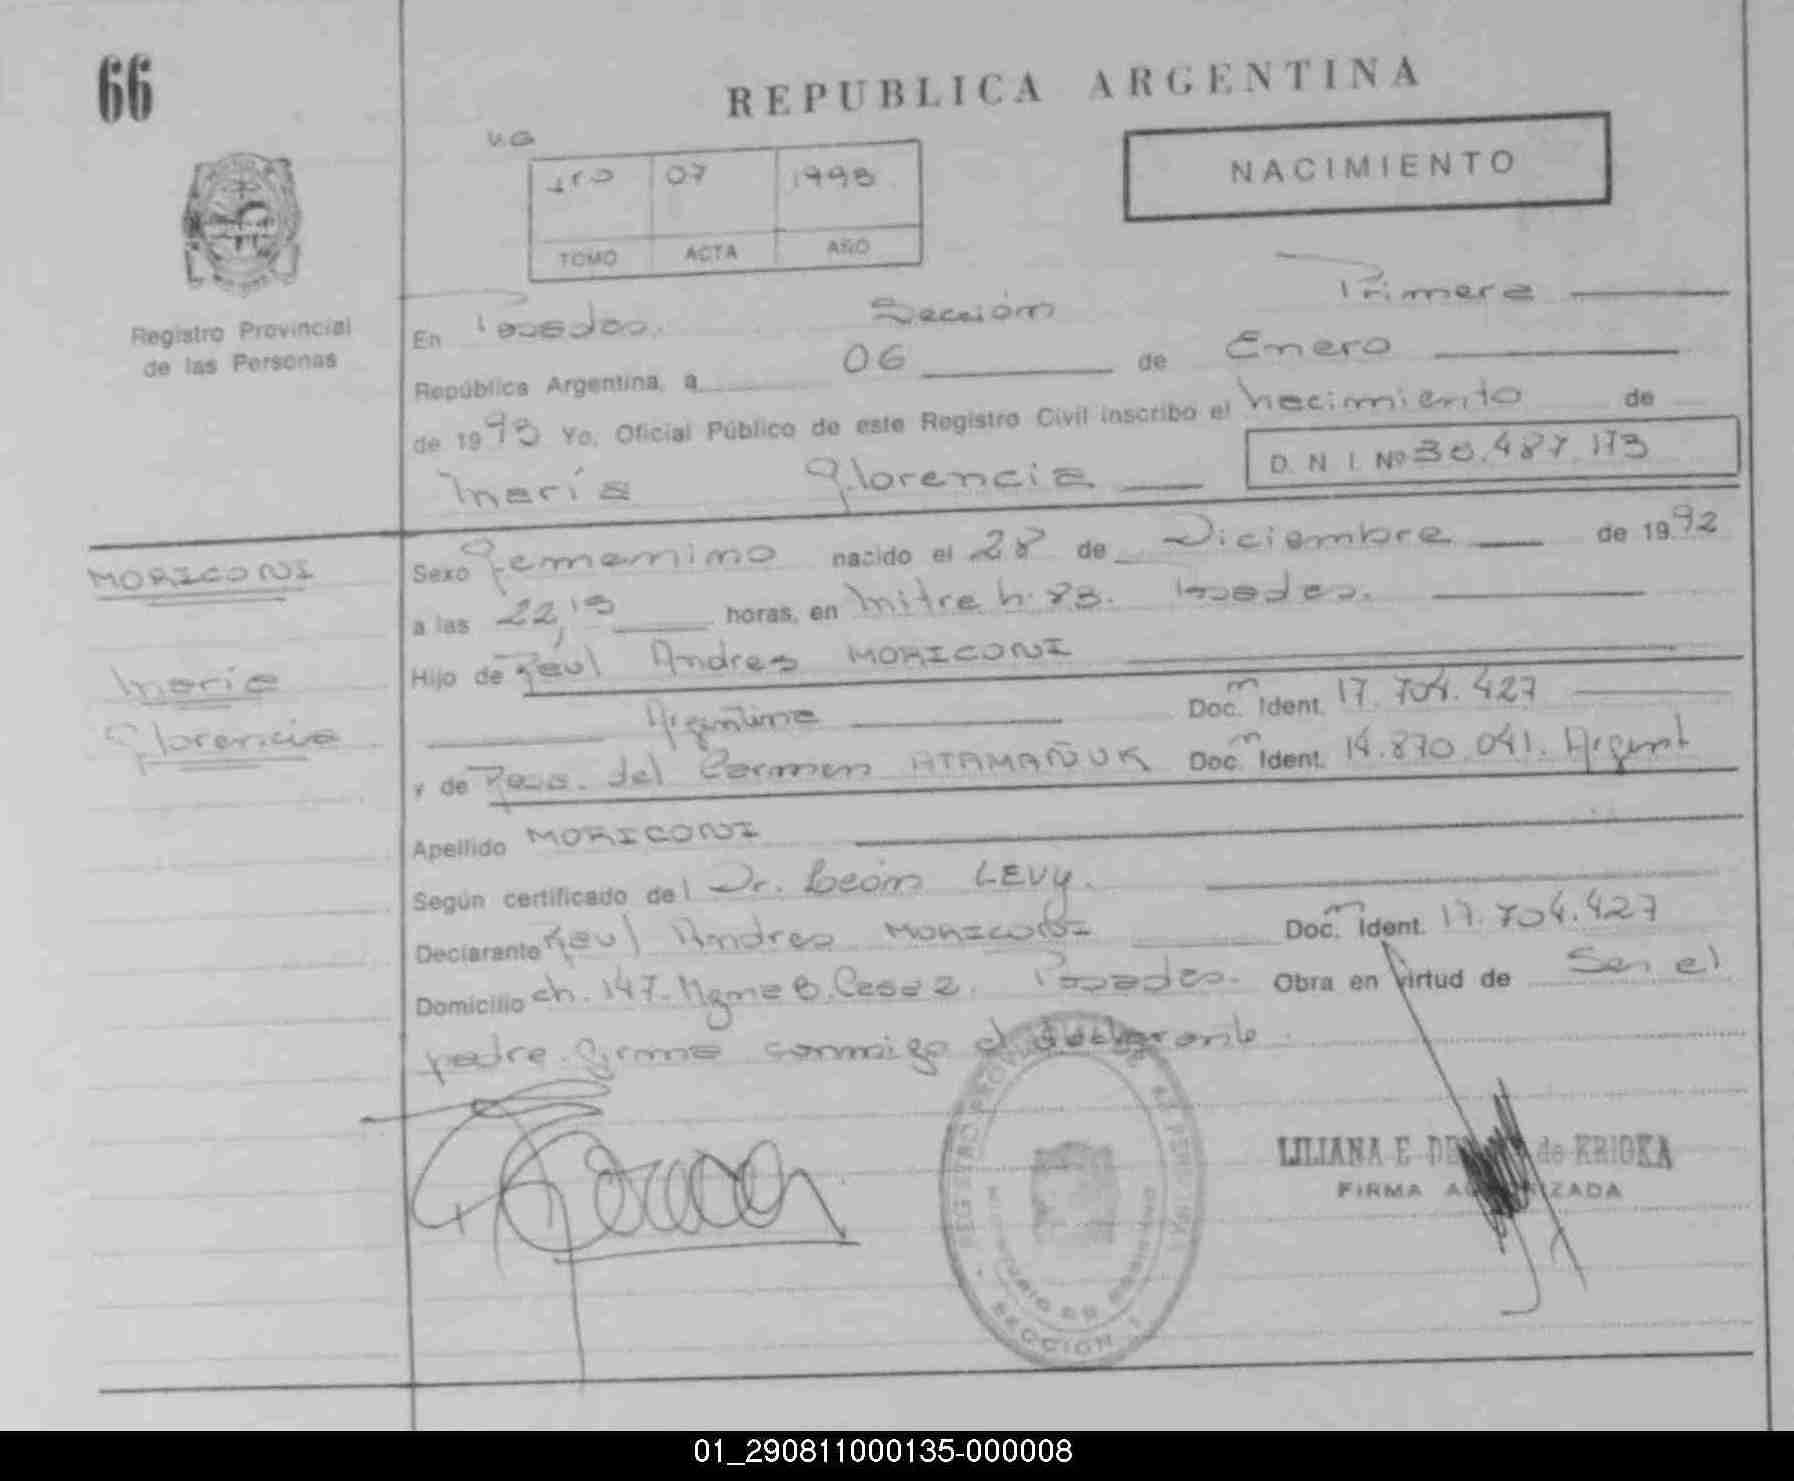 66
REPUBLICA ARGENTINA
NACIMIENTO
1ro 07 1993
TOMO ACTA AÑO
Registro Provincial
de las Personas
En Posadas. Sección Primera
República Argentina, a 06 de Enero
de 1993 Yo, Oficial Público de este Registro Civil inscribo el nacimiento de
María Florencia D. N. I. Nº 36.487.173
MORICONI
María
Florencia
Sexo Femenino nacido el 28 de Diciembre de 1992
a las 22,15 horas, en Mitre h. 83. Posadas.
Hijo de Raúl Andres MORICONI
Argentina Doc. Ident. 17.704.427
y de Rosa del Carmen ATAMAÑUK Doc. Ident. 14.870.041. Argent
Apellido MORICONI
Según certificado del Dr. León LEVY.
Declarante Raul Andres MORICONI Doc. Ident. 17.704.427
Domicilio ch. 147. Posadas. Obra en virtud de Ser el
padre firma conmigo el declarante
LILIANA E. de KRIOKA
FIRMA AUTORIZADA
SECCION 1
01_290811000135-000008